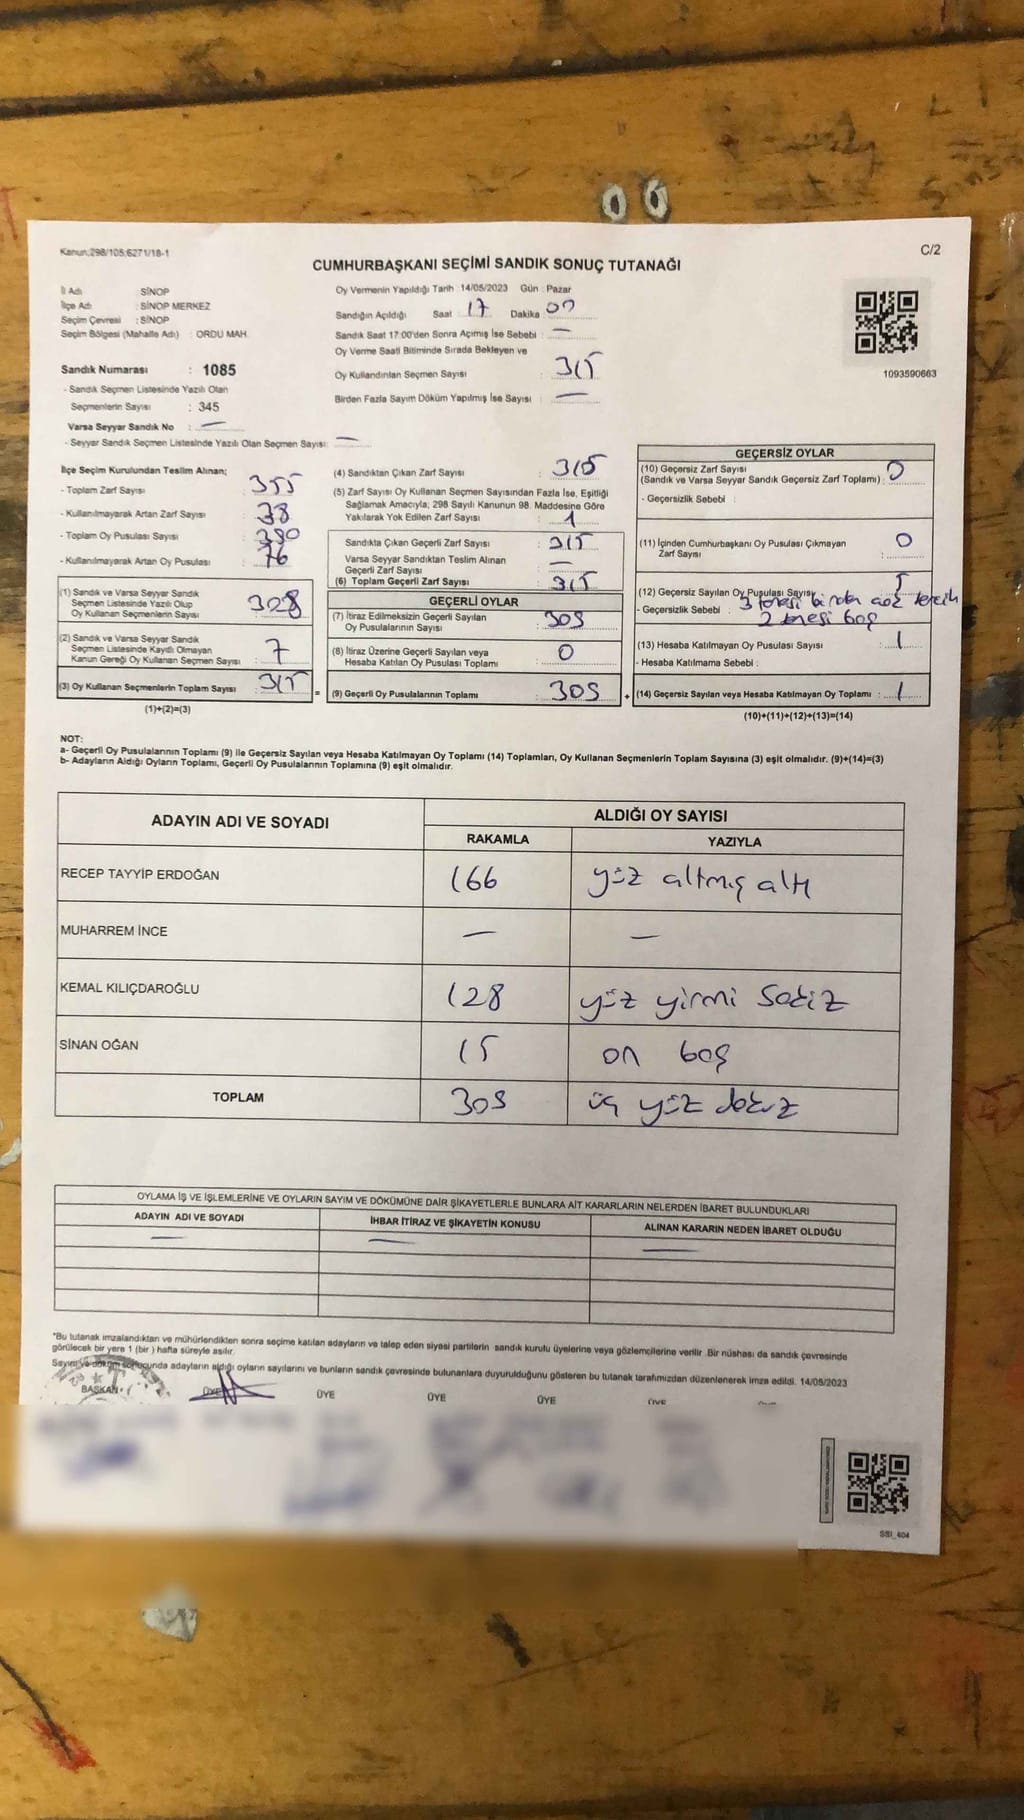 Kanun:298/105;6271/18-1
C/2
CUMHURBAŞKANI SEÇİMİ SANDIK SONUÇ TUTANAĞI
İl Adı : SİNOP
İlçe Adı : SİNOP MERKEZ
Seçim Çevresi : SİNOP
Seçim Bölgesi (Mahalle Adı) : ORDU MAH.
Sandık Numarası : 1085
- Sandık Seçmen Listesinde Yazılı Olan
Seçmenlerin Sayısı : 345
Varsa Seyyar Sandık No : —
- Seyyar Sandık Seçmen Listesinde Yazılı Olan Seçmen Sayısı: —
Oy Vermenin Yapıldığı Tarih : 14/05/2023 Gün : Pazar
Sandığın Açıldığı Saat : 17 Dakika : 00
Sandık Saat 17:00'den Sonra Açımış İse Sebebi : —
Oy Verme Saati Bitiminde Sırada Bekleyen ve
Oy Kullandırılan Seçmen Sayısı : 315
Birden Fazla Sayım Döküm Yapılmış İse Sayısı : —
1093590663
İlçe Seçim Kurulundan Teslim Alınan;
- Toplam Zarf Sayısı : 355
- Kullanılmayarak Artan Zarf Sayısı : 38
- Toplam Oy Pusulası Sayısı : 390
- Kullanılmayarak Artan Oy Pusulası : 76
(1) Sandık ve Varsa Seyyar Sandık
Seçmen Listesinde Yazılı Olup
Oy Kullanan Seçmenlerin Sayısı : 308
(2) Sandık ve Varsa Seyyar Sandık
Seçmen Listesinde Kayıtlı Olmayan
Kanun Gereği Oy Kullanan Seçmen Sayısı : 7
(3) Oy Kullanan Seçmenlerin Toplam Sayısı : 315
(1)+(2)=(3)
(4) Sandıktan Çıkan Zarf Sayısı : 315
(5) Zarf Sayısı Oy Kullanan Seçmen Sayısından Fazla İse, Eşitliği
Sağlamak Amacıyla; 298 Sayılı Kanunun 98. Maddesine Göre
Yakılarak Yok Edilen Zarf Sayısı : 1
Sandıkta Çıkan Geçerli Zarf Sayısı : 315
Varsa Seyyar Sandıktan Teslim Alınan
Geçerli Zarf Sayısı : —
(6) Toplam Geçerli Zarf Sayısı : 315
=
GEÇERLİ OYLAR
(7) İtiraz Edilmeksizin Geçerli Sayılan
Oy Pusulalarının Sayısı : 309
(8) İtiraz Üzerine Geçerli Sayılan veya
Hesaba Katılan Oy Pusulası Toplamı : 0
(9) Geçerli Oy Pusulalarının Toplamı : 309
+
GEÇERSİZ OYLAR
(10) Geçersiz Zarf Sayısı
(Sandık ve Varsa Seyyar Sandık Geçersiz Zarf Toplamı) : 0
- Geçersizlik Sebebi :
(11) İçinden Cumhurbaşkanı Oy Pusulası Çıkmayan
Zarf Sayısı : 0
(12) Geçersiz Sayılan Oy Pusulası Sayısı : 5
- Geçersizlik Sebebi : 3 tanesi birden çok tercih
2 tanesi boş
(13) Hesaba Katılmayan Oy Pusulası Sayısı : 1
- Hesaba Katılmama Sebebi :
(14) Geçersiz Sayılan veya Hesaba Katılmayan Oy Toplamı : 1
(10)+(11)+(12)+(13)=(14)
NOT:
a- Geçerli Oy Pusulalarının Toplamı (9) ile Geçersiz Sayılan veya Hesaba Katılmayan Oy Toplamı (14) Toplamları, Oy Kullanan Seçmenlerin Toplam Sayısına (3) eşit olmalıdır. (9)+(14)=(3)
b- Adayların Aldığı Oyların Toplamı, Geçerli Oy Pusulalarının Toplamına (9) eşit olmalıdır.
ADAYIN ADI VE SOYADI
ALDIĞI OY SAYISI
RAKAMLA YAZIYLA
RECEP TAYYİP ERDOĞAN 166 yüz altmış altı
MUHARREM İNCE — —
KEMAL KILIÇDAROĞLU 128 yüz yirmi sekiz
SİNAN OĞAN 15 on beş
TOPLAM 309 üç yüz dokuz
OYLAMA İŞ VE İŞLEMLERİNE VE OYLARIN SAYIM VE DÖKÜMÜNE DAİR ŞİKAYETLERLE BUNLARA AİT KARARLARIN NELERDEN İBARET BULUNDUKLARI
ADAYIN ADI VE SOYADI İHBAR İTİRAZ VE ŞİKAYETİN KONUSU ALINAN KARARIN NEDEN İBARET OLDUĞU
— — —
*Bu tutanak imzalandıktan ve mühürlendikten sonra seçime katılan adayların ve talep eden siyasi partilerin sandık kurulu üyelerine veya gözlemcilerine verilir .Bir nüshası da sandık çevresinde
görülecek bir yere 1 (bir ) hafta süreyle asılır.
Sayım ve döküm sonucunda adayların aldığı oyların sayılarını ve bunların sandık çevresinde bulunanlara duyurulduğunu gösteren bu tutanak tarafımızdan düzenlenerek imza edildi. 14/05/2023
BAŞKAN ÜYE ÜYE ÜYE ÜYE ÜYE
SSI_404